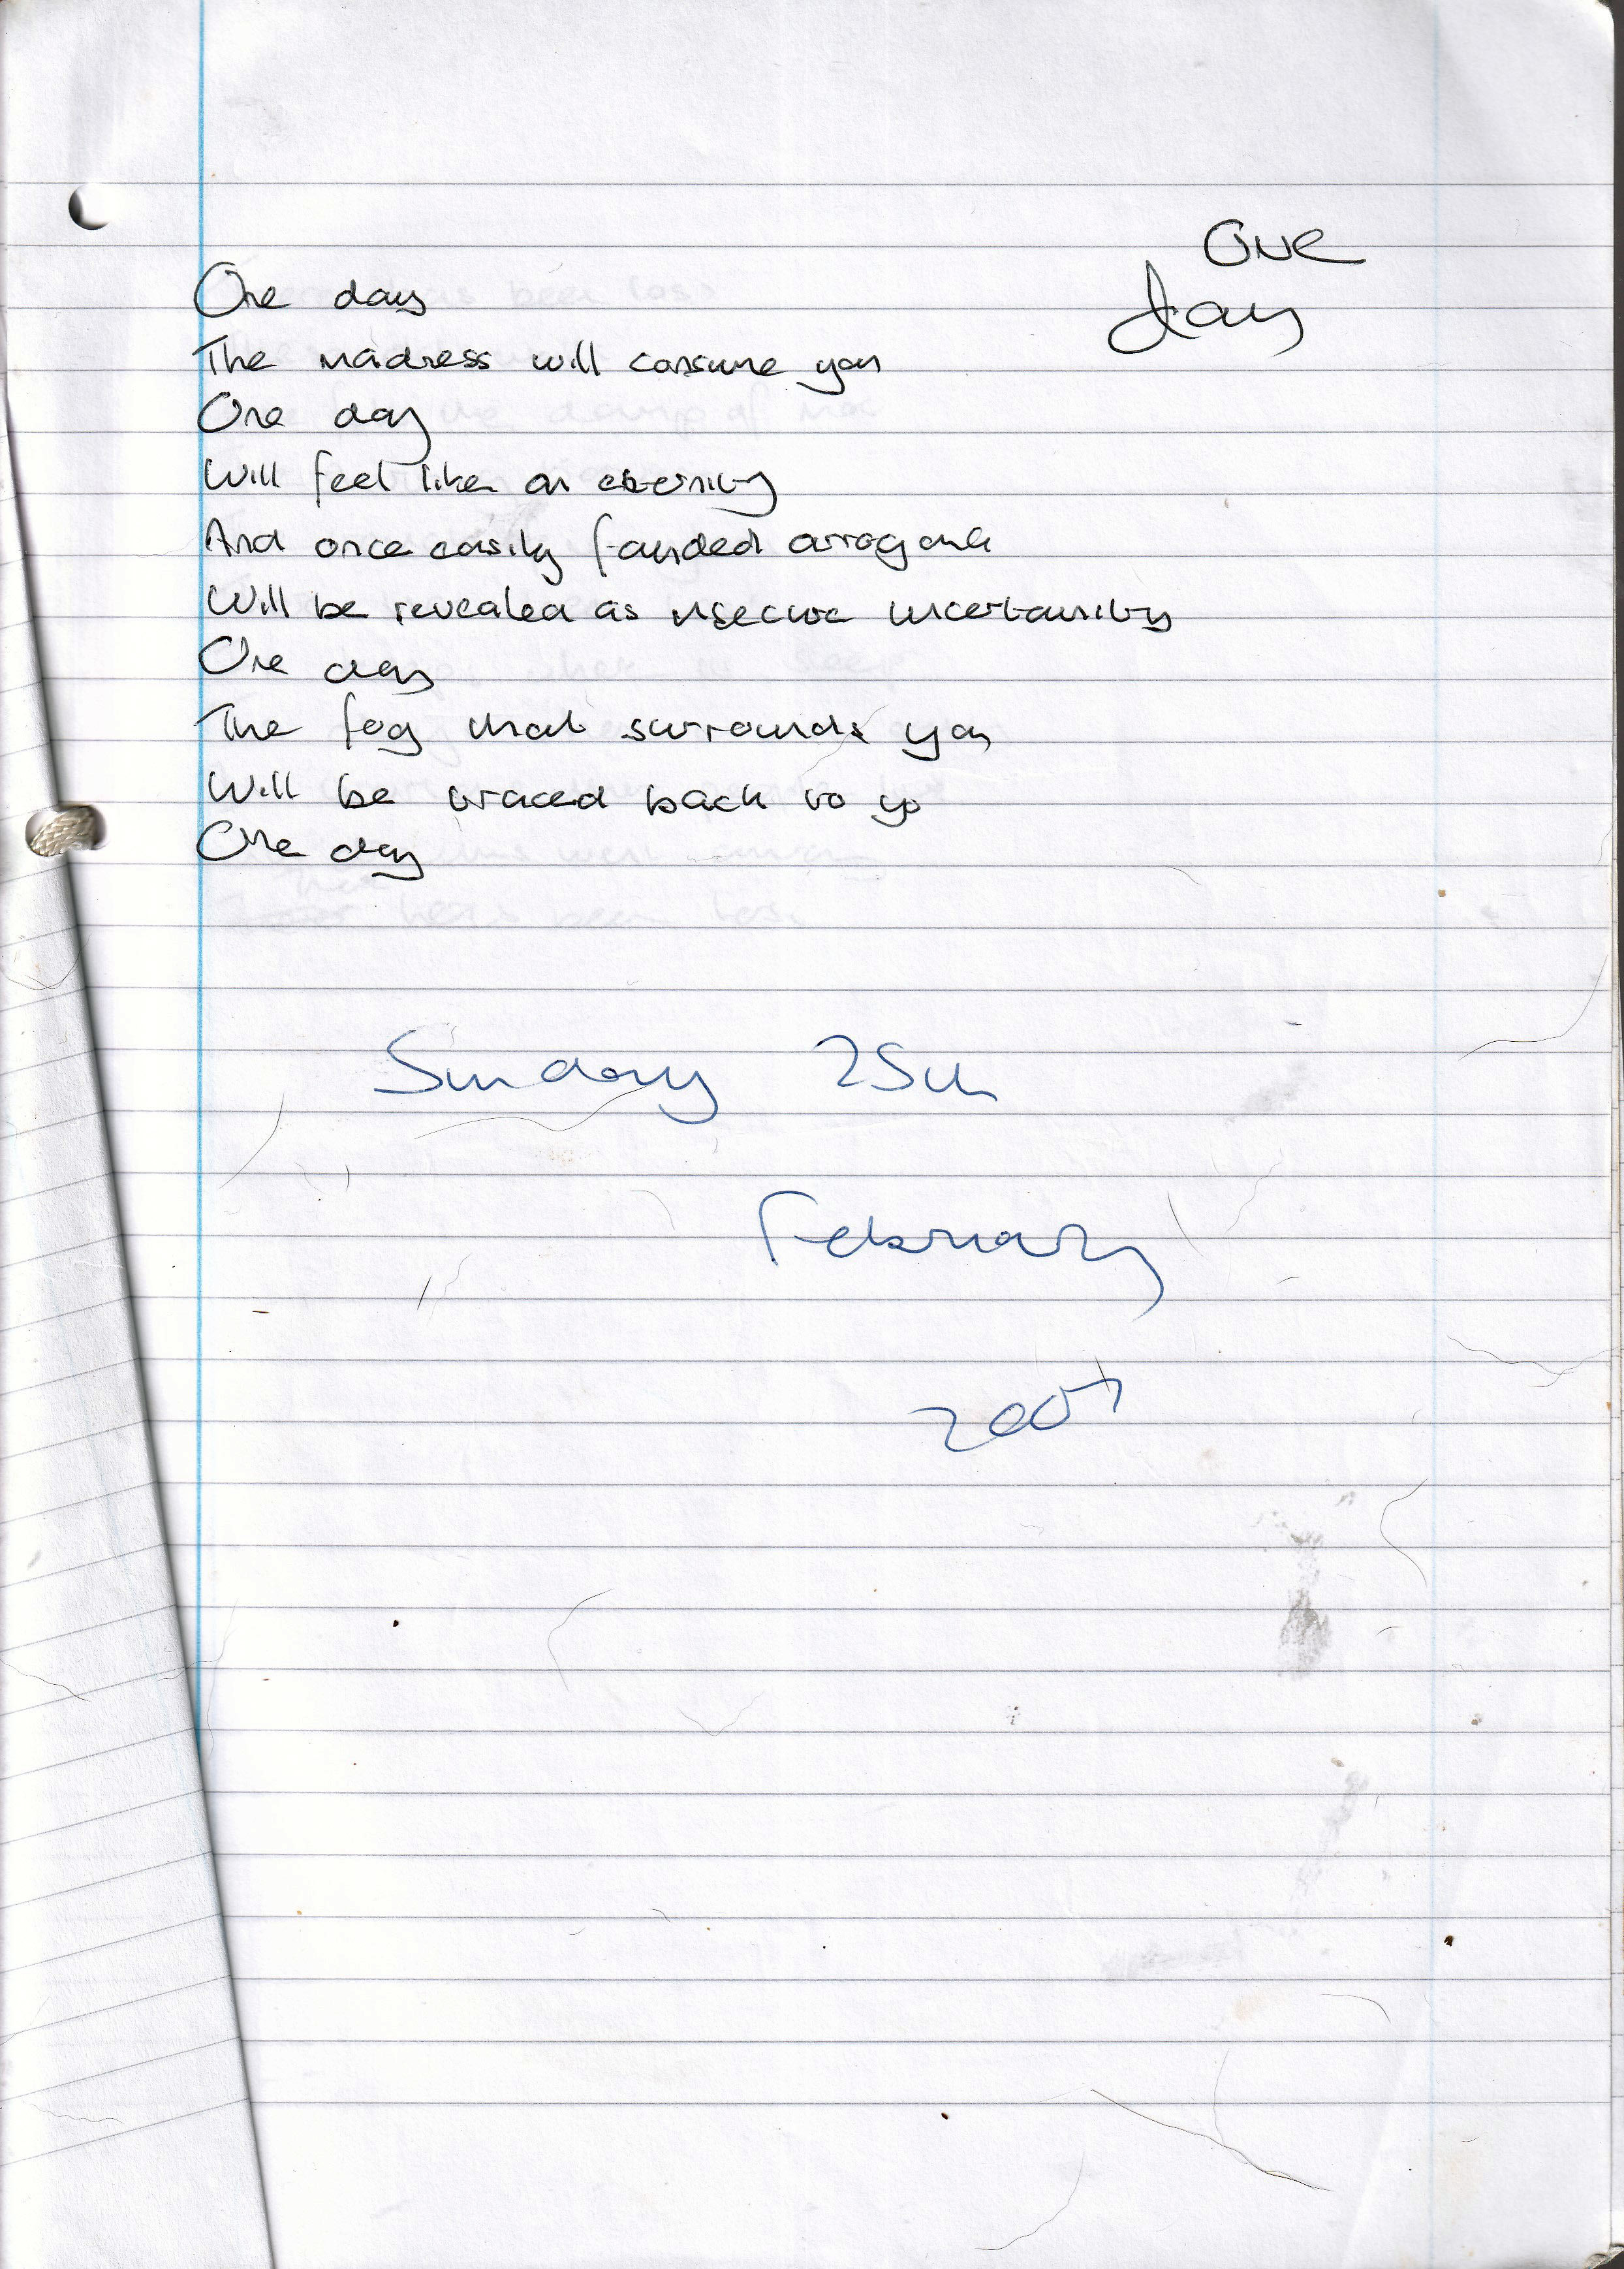 One
day
One day
The madness will consume you
One day
Will feel like an eternity
And once easily founded arrogance
Will be revealed as insecure uncertainity
One day
The fog that surrounds you
Will be traced back to yo
One day
Sunday 25th
February
2007